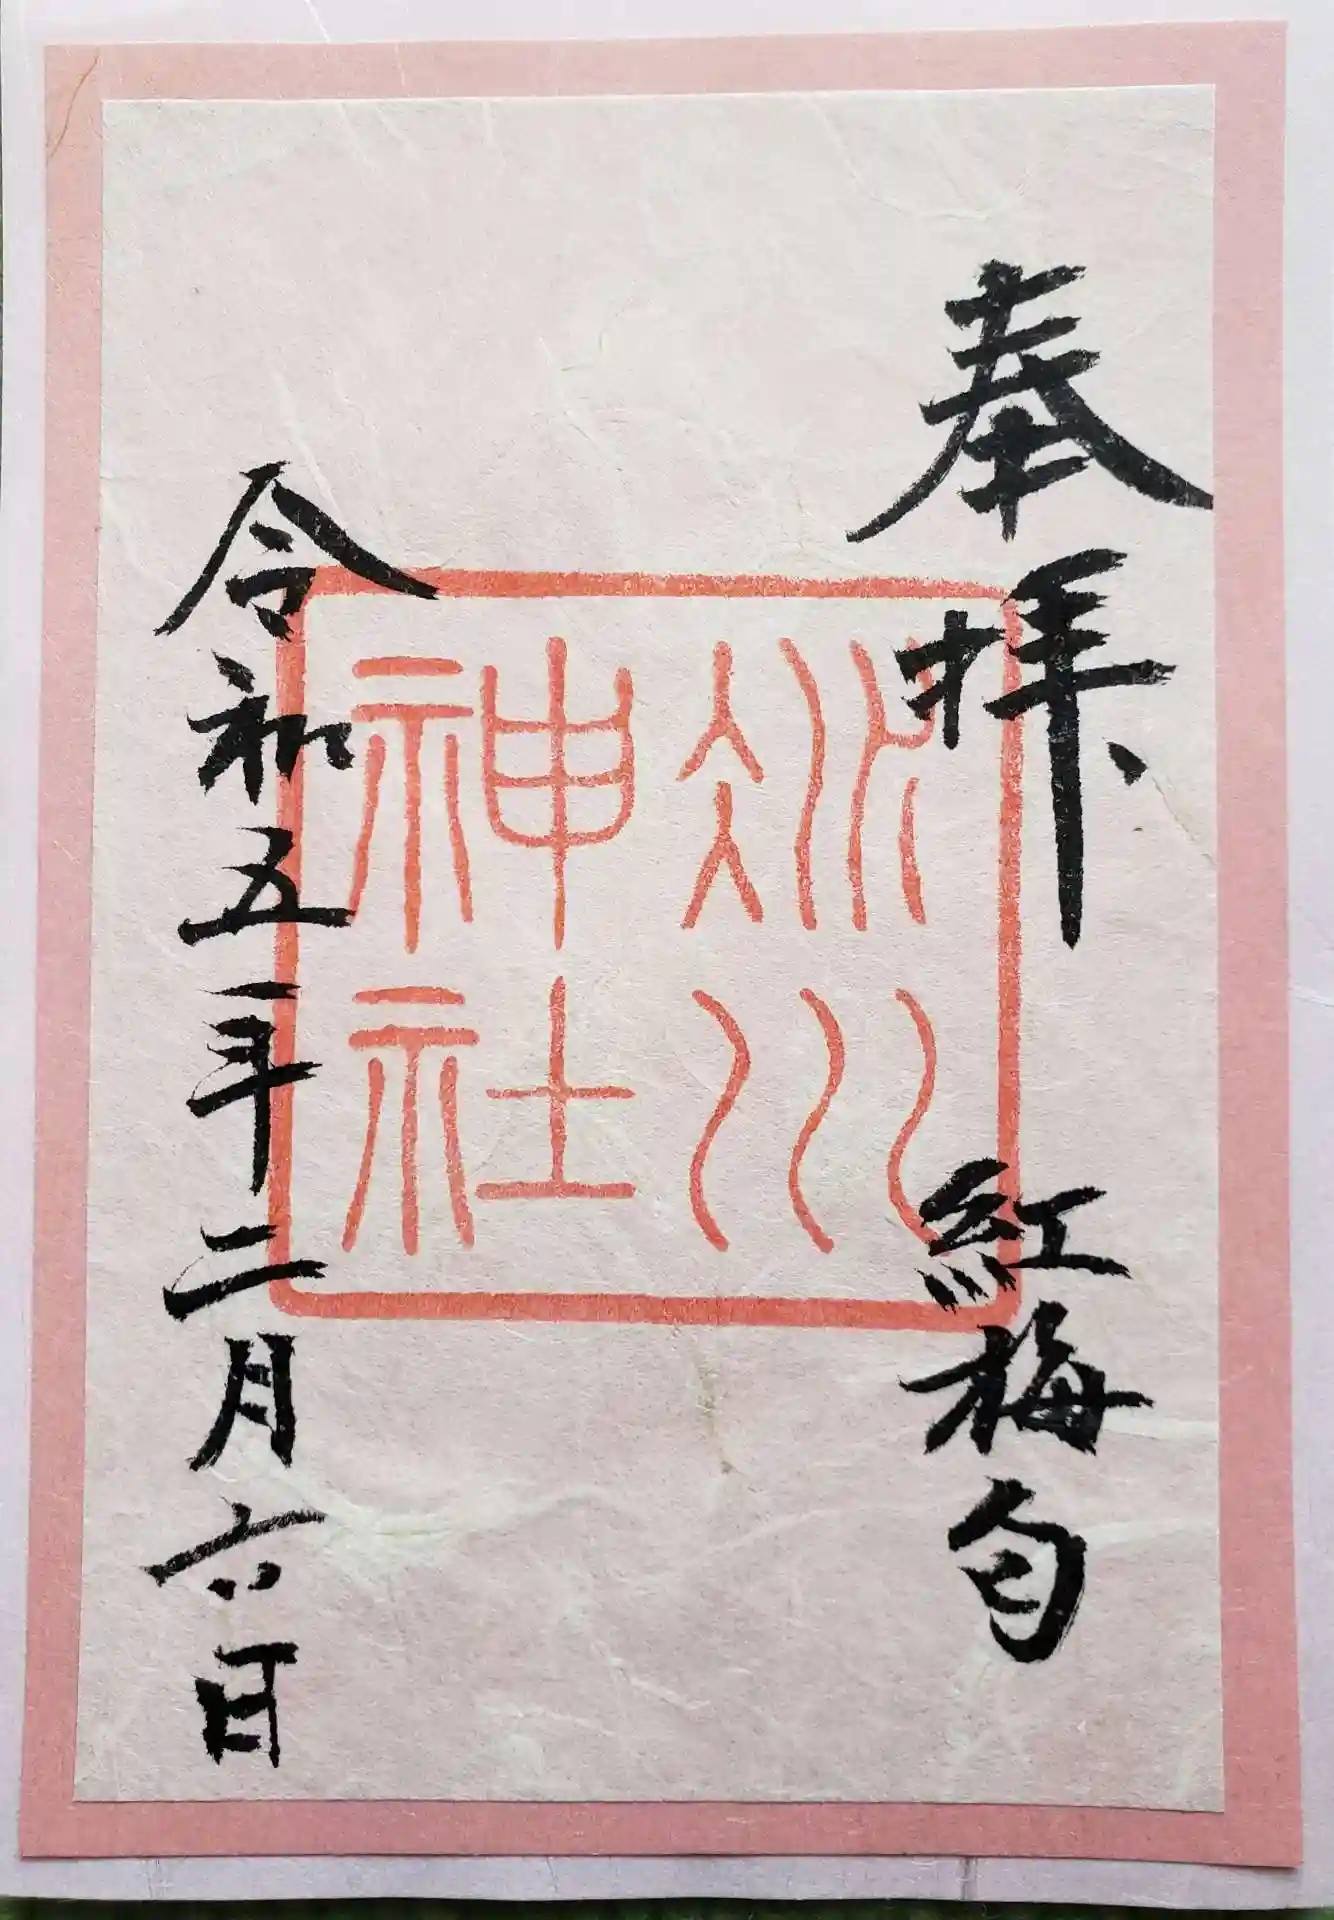 奉拝 紅梅匂
冰川
神社
令和五年二月六日